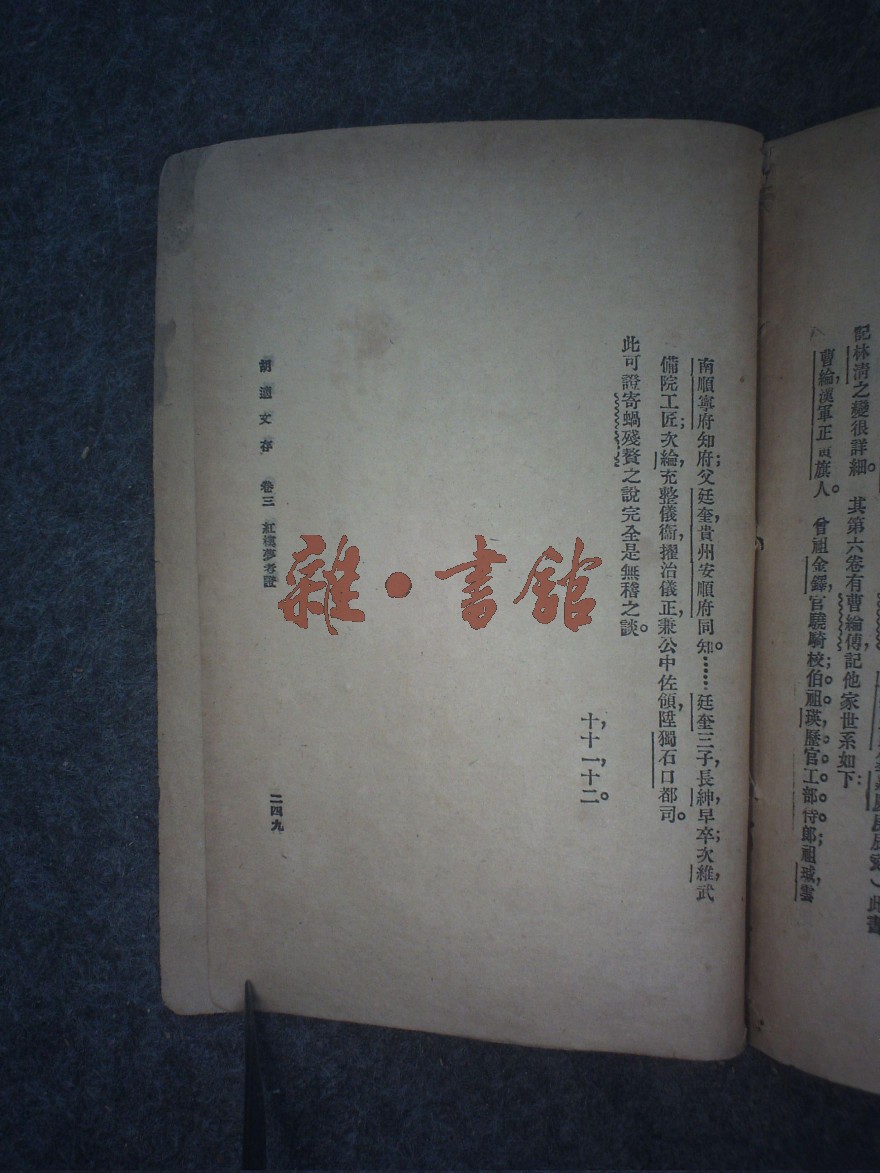 記林清之變很詳細。其第六卷有曹綸傳，記他家世系如下：
曹綸，漢軍正黃旗人。曾祖金鐸，官驍騎校；伯祖瑛，歷官工部侍郎；祖瑊，雲
南順寧府知府；父廷奎，貴州安順府同知。……廷奎三子，長紳，早卒；次維，武
備院工匠；次綸，充整儀衞，擢治儀正，兼公中佐領，陞獨石口都司。
此可證寄蝸殘贅之說完全是無稽之談。
十，十一，十二。
胡適文存 卷三 紅樓夢考證
二四九
雜·書館